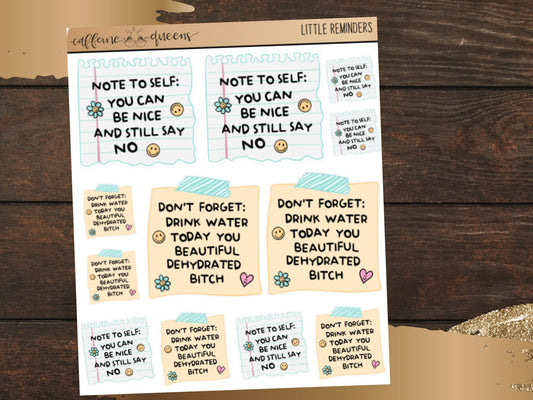 caffeine queens
LITTLE REMINDERS
NOTE TO SELF:
YOU CAN
BE NICE
AND STILL SAY
NO
NOTE TO SELF:
YOU CAN
BE NICE
AND STILL SAY
NO
NOTE TO SELF:
YOU CAN
BE NICE
AND STILL SAY
NO
NOTE TO SELF:
YOU CAN
BE NICE
AND STILL SAY
NO
DON'T FORGET:
DRINK WATER
TODAY YOU
BEAUTIFUL
DEHYDRATED
BITCH
DON'T FORGET:
DRINK WATER
TODAY YOU
BEAUTIFUL
DEHYDRATED
BITCH
DON'T FORGET:
DRINK WATER
TODAY YOU
BEAUTIFUL
DEHYDRATED
BITCH
DON'T FORGET:
DRINK WATER
TODAY YOU
BEAUTIFUL
DEHYDRATED
BITCH
NOTE TO SELF:
YOU CAN
BE NICE
AND STILL SAY
NO
DON'T FORGET:
DRINK WATER
TODAY YOU
BEAUTIFUL
DEHYDRATED
BITCH
NOTE TO SELF:
YOU CAN
BE NICE
AND STILL SAY
NO
DON'T FORGET:
DRINK WATER
TODAY YOU
BEAUTIFUL
DEHYDRATED
BITCH